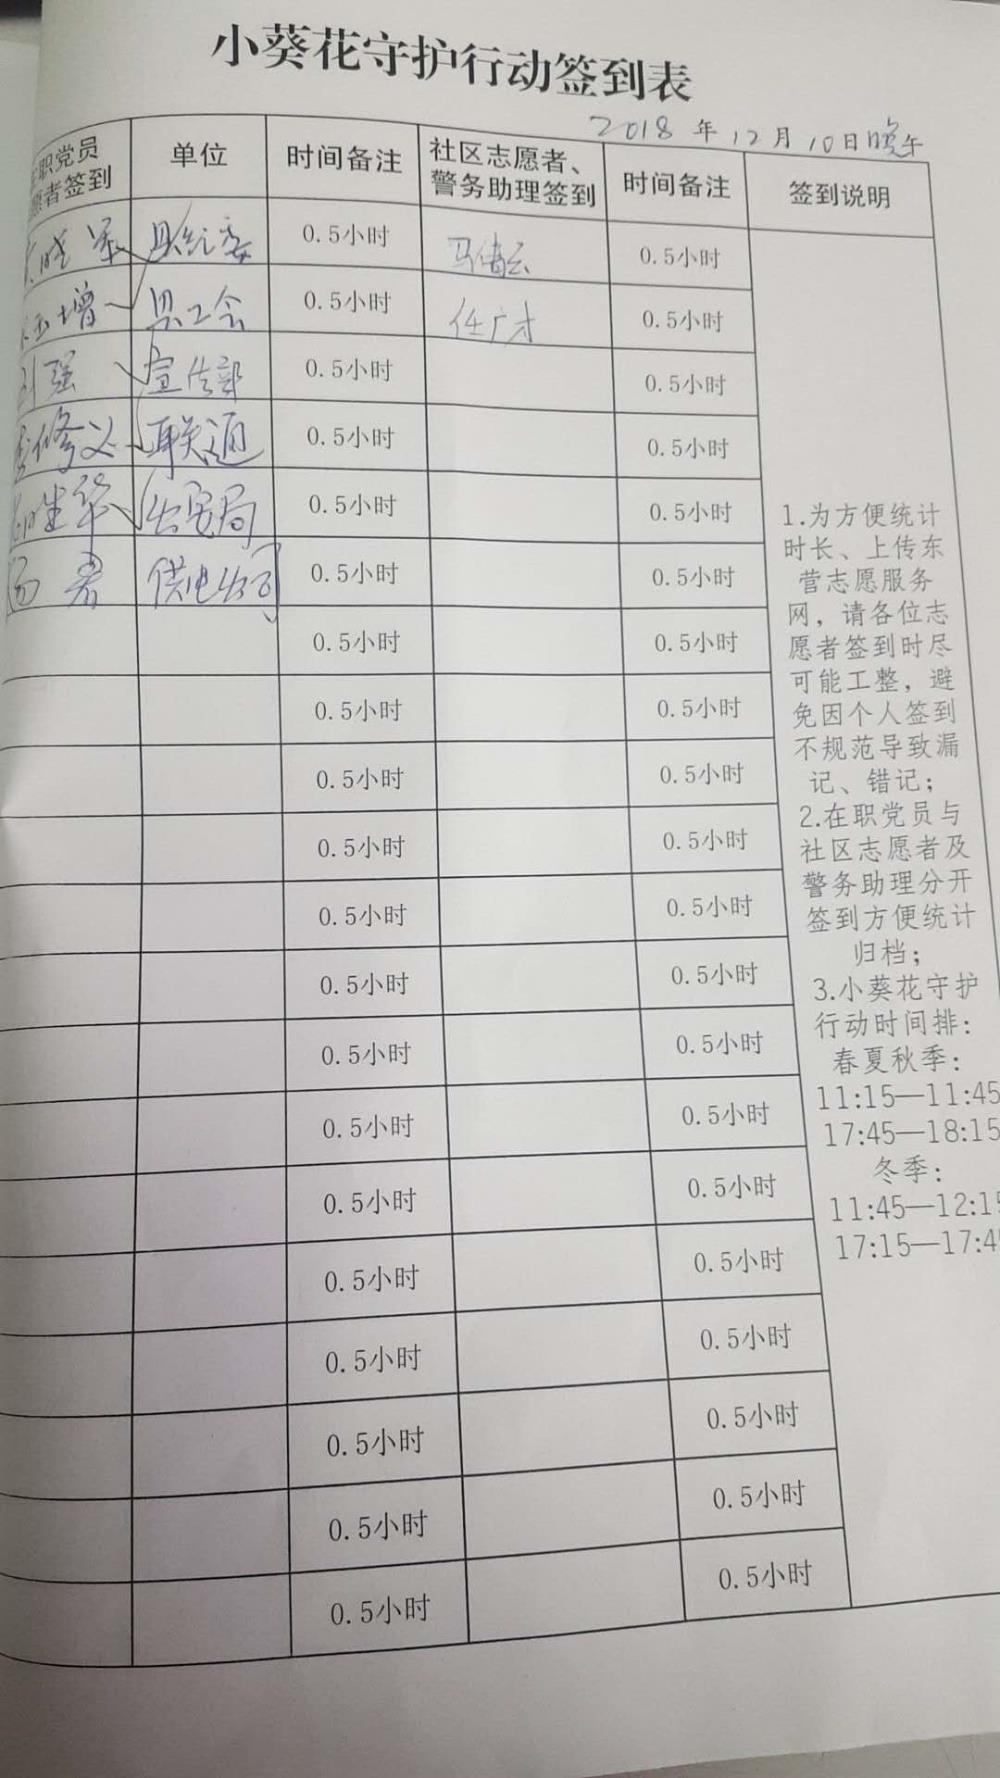 小葵花守护行动签到表
2018年12月10日晚午
职党员
愿者签到
单位
时间备注
社区志愿者、
警务助理签到
时间备注
签到说明
县纪委 0.5小时 马倩云 0.5小时
增 县工会 0.5小时 任广才 0.5小时
强 宣传部 0.5小时 0.5小时
修义 联通 0.5小时 0.5小时
华 公安局 0.5小时 0.5小时
供电公司 0.5小时 0.5小时
0.5小时 0.5小时
0.5小时 0.5小时
0.5小时 0.5小时
0.5小时 0.5小时
0.5小时 0.5小时
0.5小时 0.5小时
0.5小时 0.5小时
0.5小时 0.5小时
0.5小时 0.5小时
0.5小时 0.5小时
0.5小时 0.5小时
0.5小时 0.5小时
0.5小时 0.5小时
0.5小时 0.5小时
1.为方便统计
时长、上传东
营志愿服务
网，请各位志
愿者签到时尽
可能工整，避
免因个人签到
不规范导致漏
记、错记；
2.在职党员与
社区志愿者及
警务助理分开
签到方便统计
归档；
3.小葵花守护
行动时间排：
春夏秋季：
11:15—11:45
17:45—18:15
冬季：
11:45—12:15
17:15—17:4